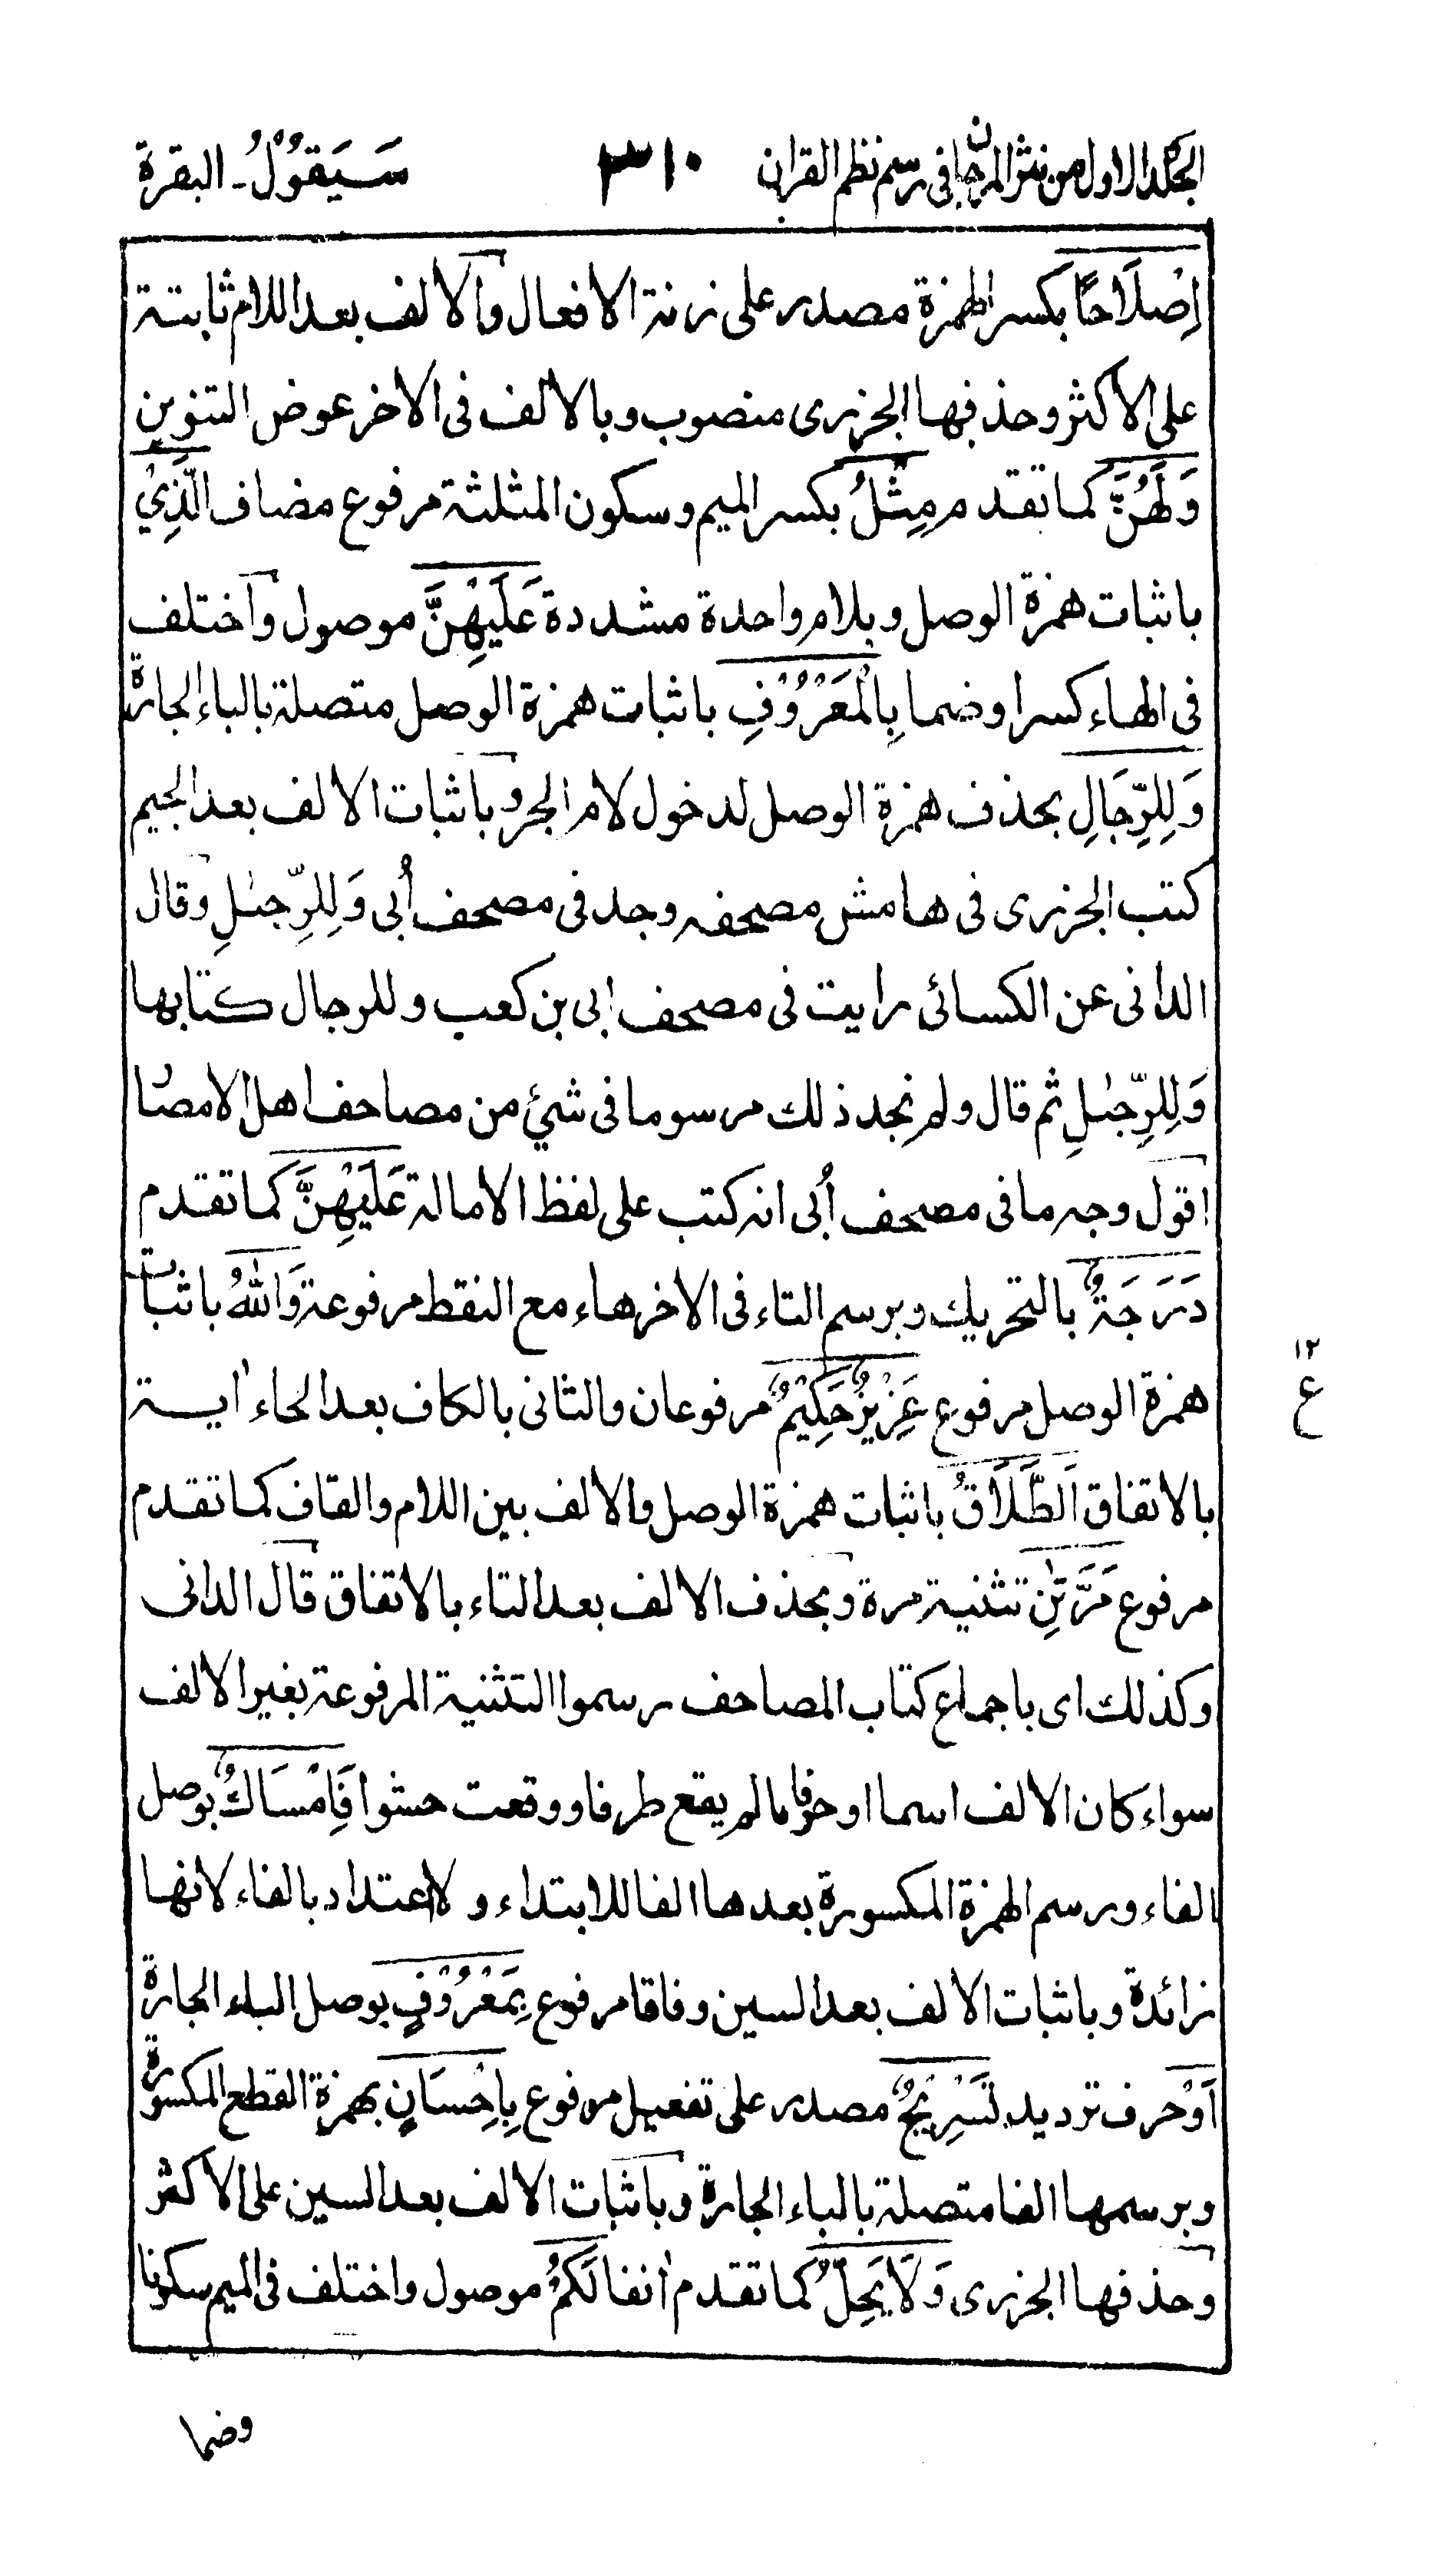 الجلد الاول من نثر المرجان فى رسم نظم القران
٣١٠
سَيَقُوْلُ۔ البقرة
اِصْلَاحًا بكسر الهمزة مصدر على زنة الافعال والالف بعد اللام ثابتة
على الاكثر وحذفها الجزرى منصوب وبالالف فى الاخر عوض التنوين
وَلَهُنَّ كما تقدم مِثْلُ بكسر الميم وسكون المثلثة مرفوع مضاف الَّذِيْ
باثبات همزة الوصل وبلام واحدة مشددة عَلَيْهِنَّ موصول واختلف
فى الهاء كسرا وضما بِالْمَعْرُوْفِ باثبات همزة الوصل متصلة بالباء الجارة
وَلِلرِّجَالِ بحذف همزة الوصل لدخول لام الجر وباثبات الالف بعد الجيم
كتب الجزرى فى هامش مصحفه وجد فى مصحف أُبى وَلِلرِّجىلِ وقال
الدانى عن الكسائى رايت فى مصحف ابى بن كعب وللرجال كتابها
وَلِلرِّجىلِ ثم قال ولم نجد ذلك مرسوما فى شئ من مصاحف اهل الامصار
اقول وجه ما فى مصحف أُبى انه كتب على لفظ الامالة عَلَيْهِنَّ كما تقدم
دَرَجَةٌ بالتحريك وبرسم التاء فى الاخر هاء مع النقط مرفوعة وَاللهُ باثبات
همزة الوصل مرفوع عَزِيْزٌ حَكِيْمٌ مرفوعان والثانى بالكاف بعد الحاء اٰية
١٢
ع
بالاتفاق اَلطَّلَاقُ باثبات همزة الوصل والالف بين اللام والقاف كما تقدم
مرفوع مَرَّتٰنِ تثنية مرة وبحذف الالف بعد التاء بالاتفاق قال الدانى
وكذلك اى باجماع كتاب المصاحف رسموا التثنية المرفوعة بغير الالف
سواء كان الالف اسما او حرفا ما لم يقع طرفا ووقعت حشوا فَاِمْسَاكٌ بوصل
الفاء ورسم الهمزة المكسورة بعدها الفا للابتداء ولا اعتداد بالفاء لانها
زائدة وباثبات الالف بعد السين وفاقا مرفوع بِمَعْرُوْفٍ بوصل الباء الجارة
اَوْ حرف ترديد تَسْرِيْحٌ مصدر على تفعيل مرفوع بِاِحْسَانٍ بهمزة القطع المكسورة
وبرسمها الفا متصلة بالباء الجارة وباثبات الالف بعد السين على الاكثر
وحذفها الجزرى وَلَا يَحِلُّ كما تقدم اٰنفا لَكُمْ موصول واختلف فى الميم سكونا
وضما